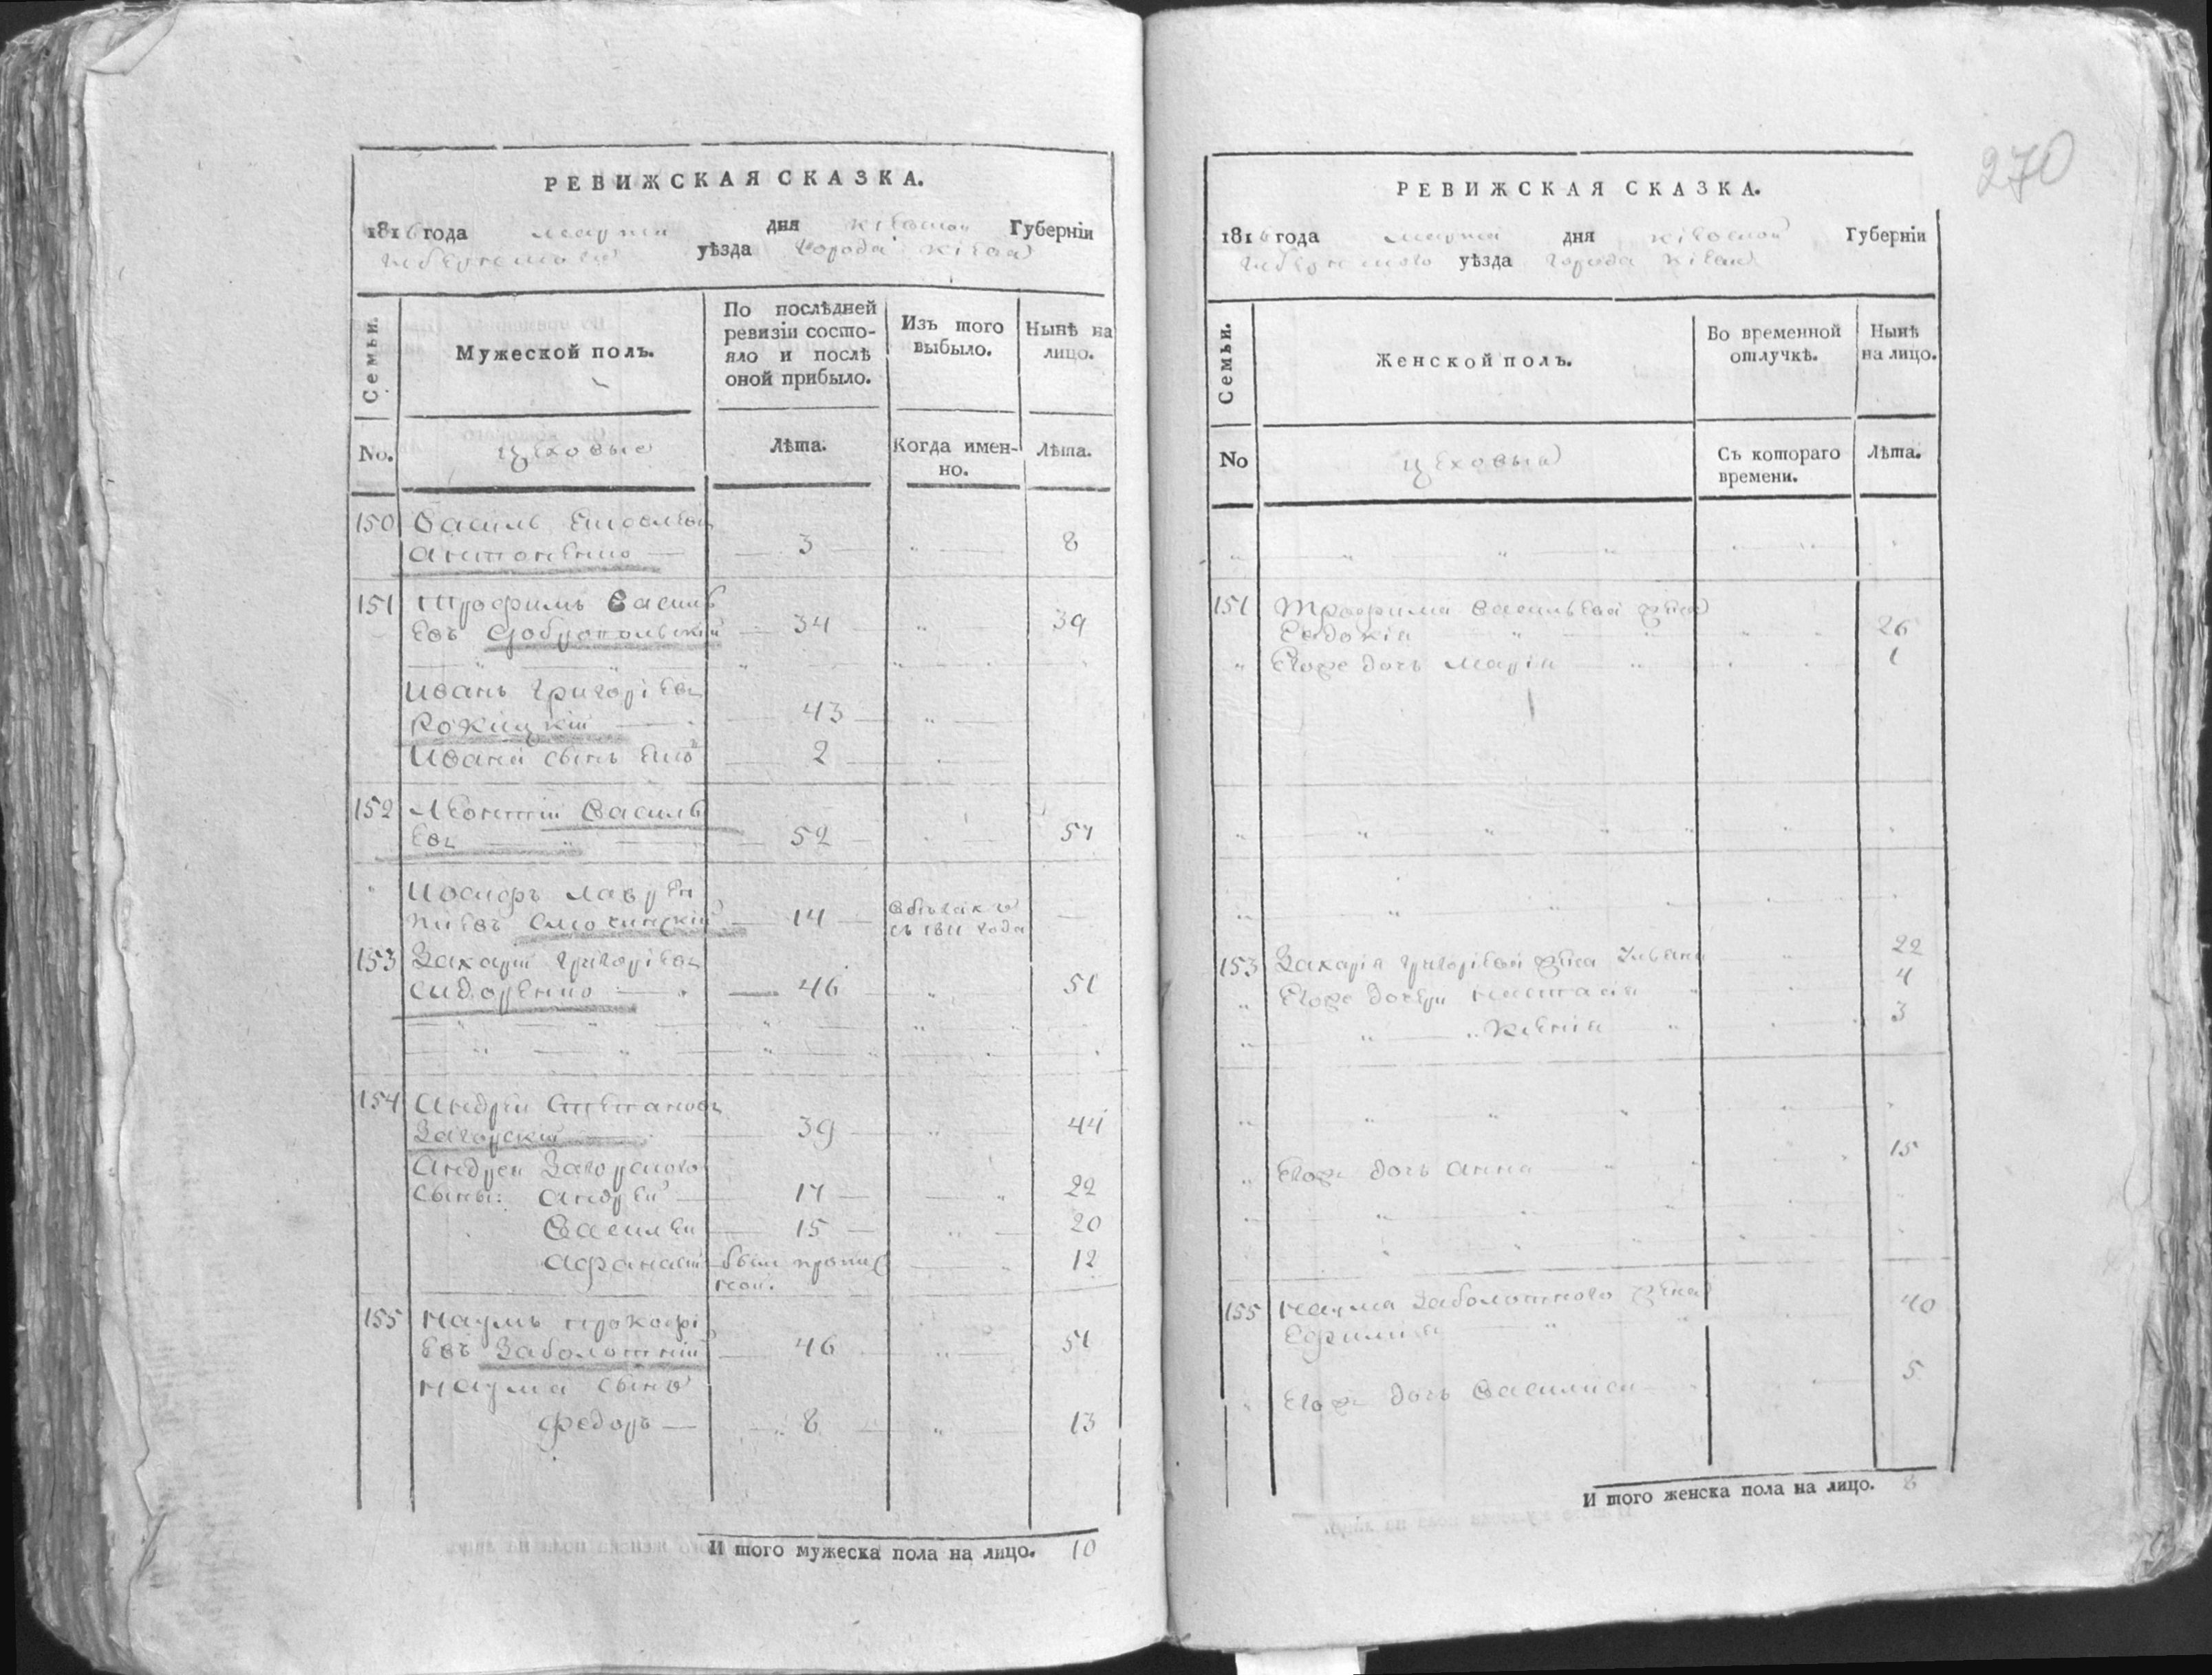 РЕВИЖСКАЯ СКАЗКА.
1816 года марта дня Кіевской Губерніи
уѣзда города Кіева
Семьи.
Мужеской полъ.
По послѣдней
ревизіи состо-
яло и послѣ
оной прибыло.
Изъ того
выбыло.
Нынѣ на
лицо.
No.
цеховые
Лѣта.
Когда имен-
но.
Лѣта.
150 Василь
Антоненко 3 8
151 Трофимъ Василь
евъ Добропольскій 34 39
Иванъ Григоріевъ
Рокицкій 43
Ивана сынъ 2
152 Леонтій Василь
евъ 52 57
Иосифъ Лаврен
тіевъ 14
съ 1811 года
153 Захарій Григоріевъ
Сидоренко 46 51
154 Андрей Степановъ
Загорскій 39 44
Андрея Загорского
сыны: Андрей 17 22
Василей 15 20
Афанасій былъ пропис
ной. 12
155 Наумъ Прокофі
евъ Заболотній 46 51
Наума сынъ
Федоръ 8 13
И того мужеска пола на лицо. 10
270
РЕВИЖСКАЯ СКАЗКА.
1816 года марта дня Кіевской Губерніи
уѣзда города Кіева
Семьи.
Женской полъ.
Во временной
отлучкѣ.
Нынѣ
на лицо.
No
цеховыя
Съ котораго
времени.
Лѣта.
151 Трофима Васильева жена
Евдокія 26
Егоже дочь Марія 1
153 Захарія Григоріева жена Ульяна 22
Егоже дочери Настасія 4
Ксенія 3
Егоже дочь Анна 15
155 Наума Заболотного жена
Ефимія 40
Егоже дочь Василиса 5
И того женска пола на лицо. 8